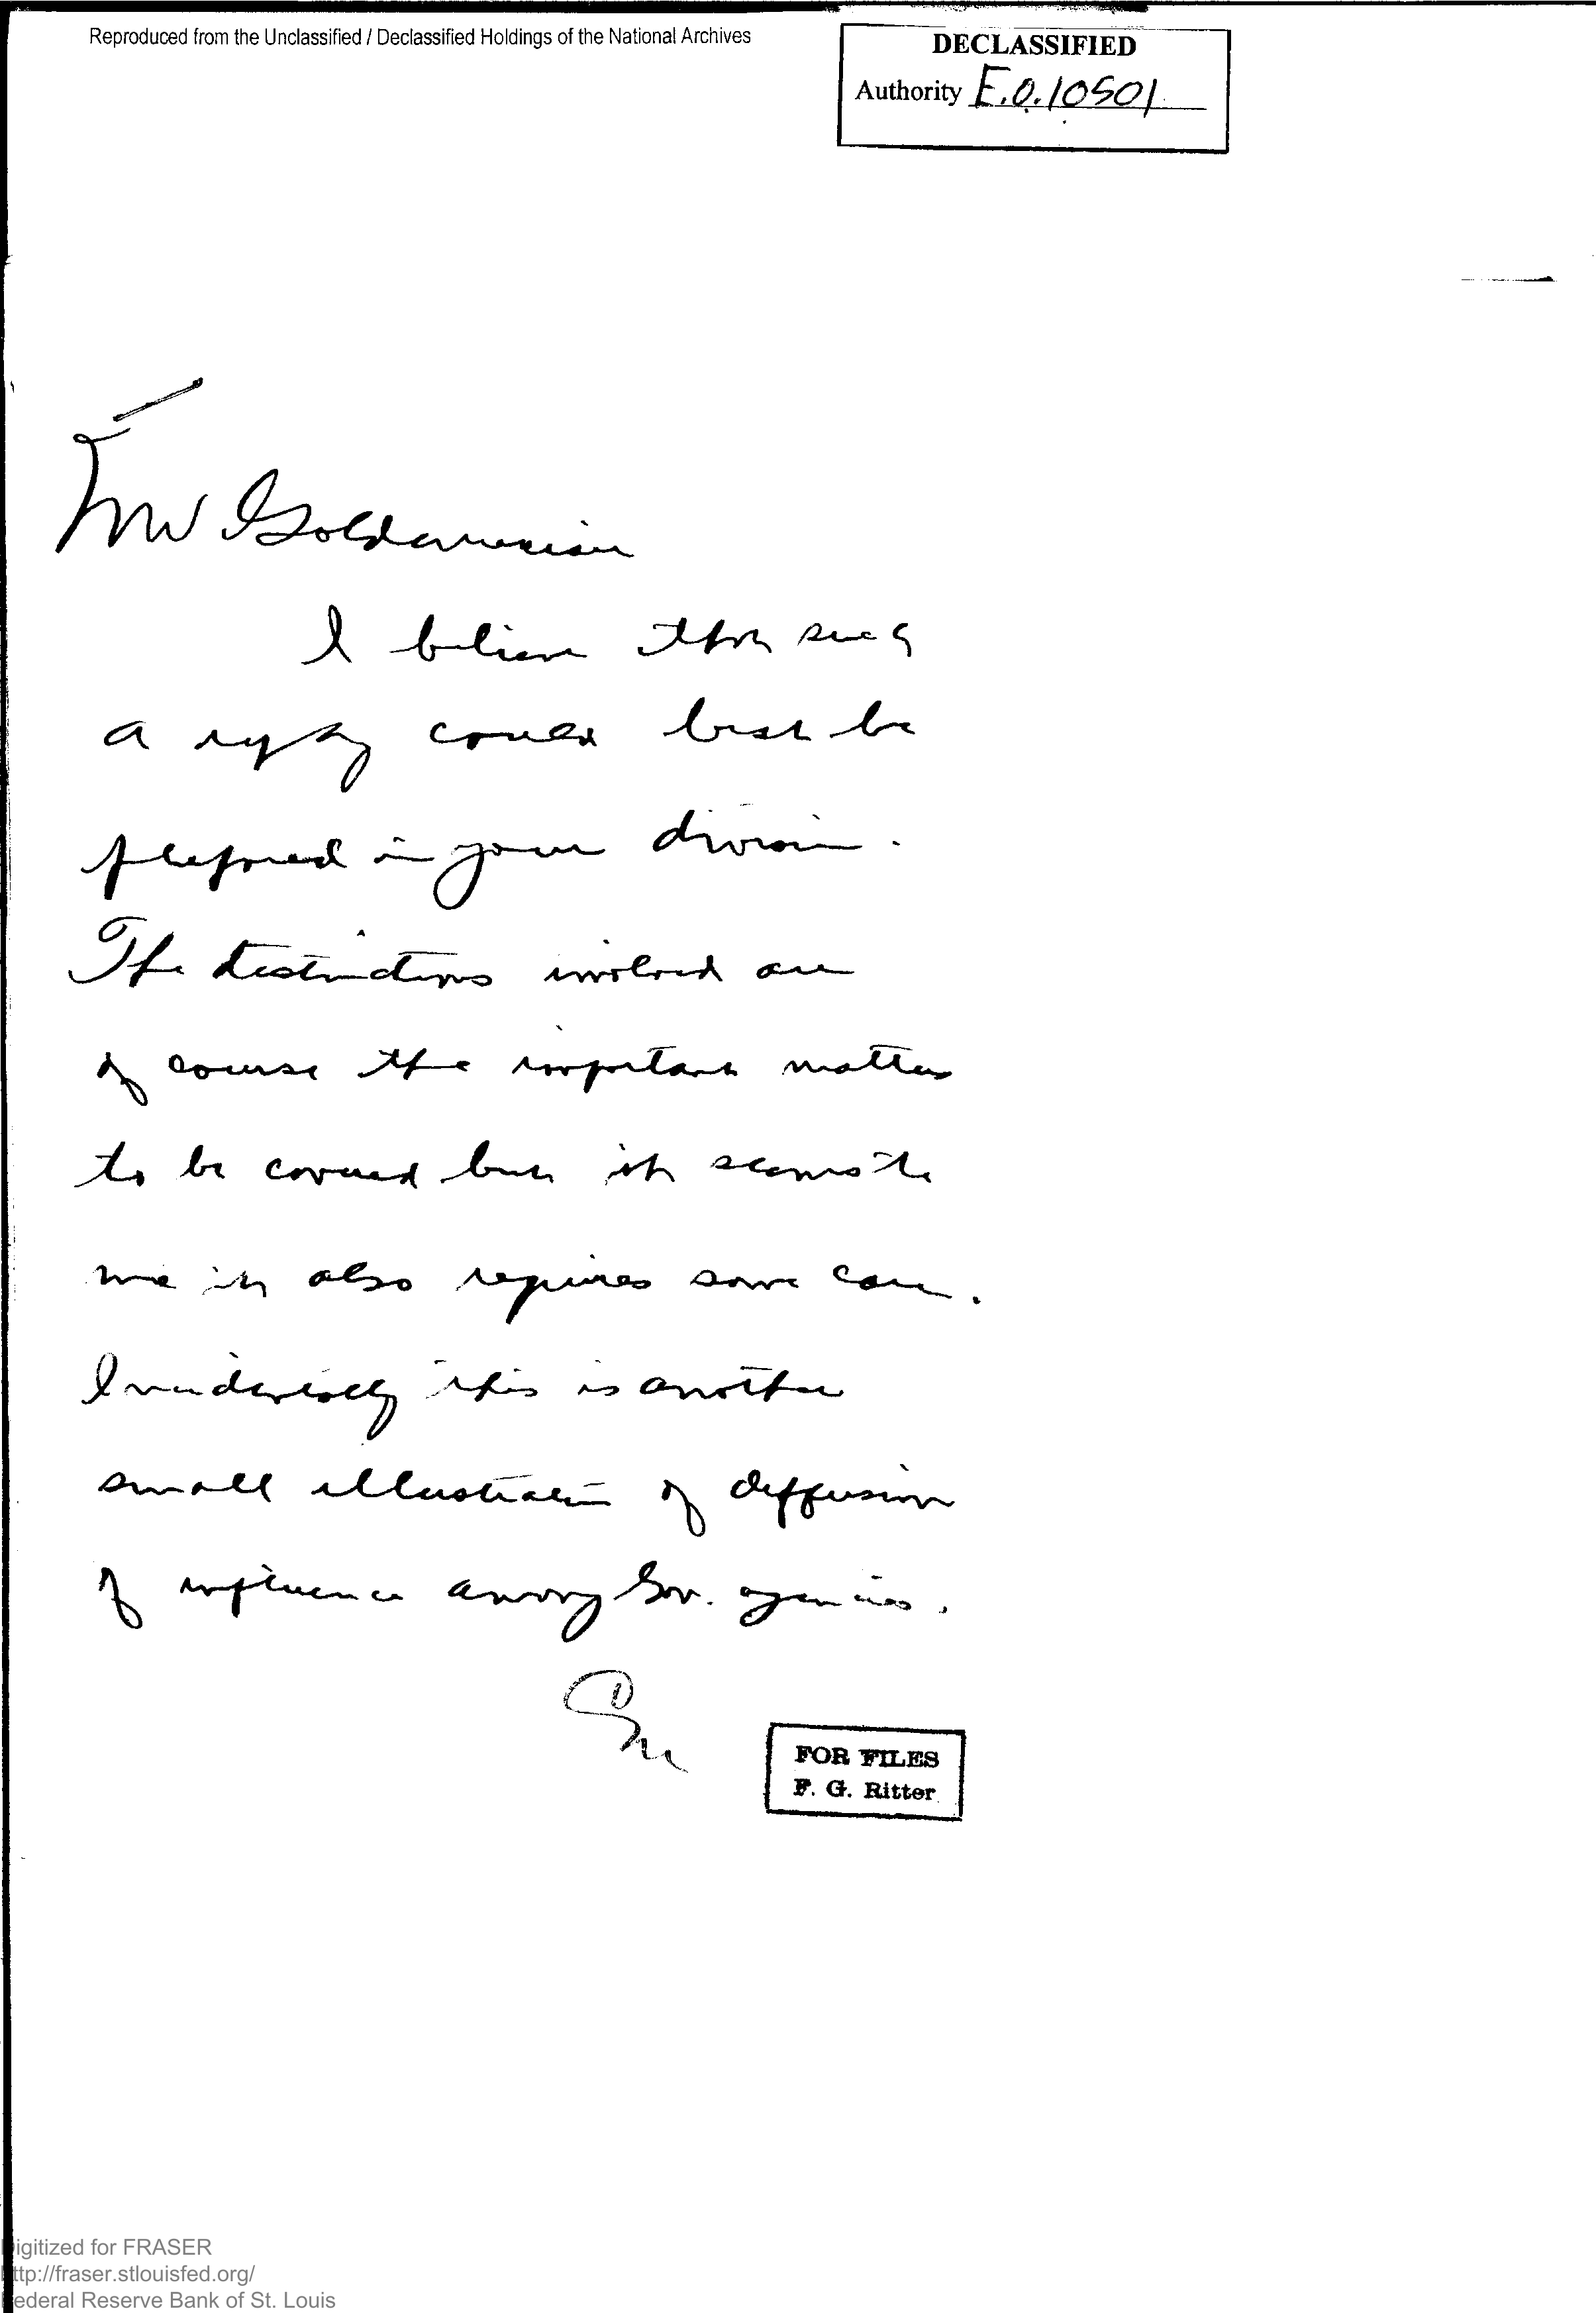 Reproduced from the Unclassified / Declassified Holdings of the National Archives
DECLASSIFIED
Authority E.O.10501
Mr Goldenweiser
I believe that such
a reply could best be
prepared in your division.
The distinctions involved are
of course the important matter
to be covered but it seems to
me it also requires some care.
Incidentally this is another
small illustration of diffusion
of influence among Gov. agencies.
FOR FILES
F. G. Ritter
igitized for FRASER
ttp://fraser.stlouisfed.org/
ederal Reserve Bank of St. Louis